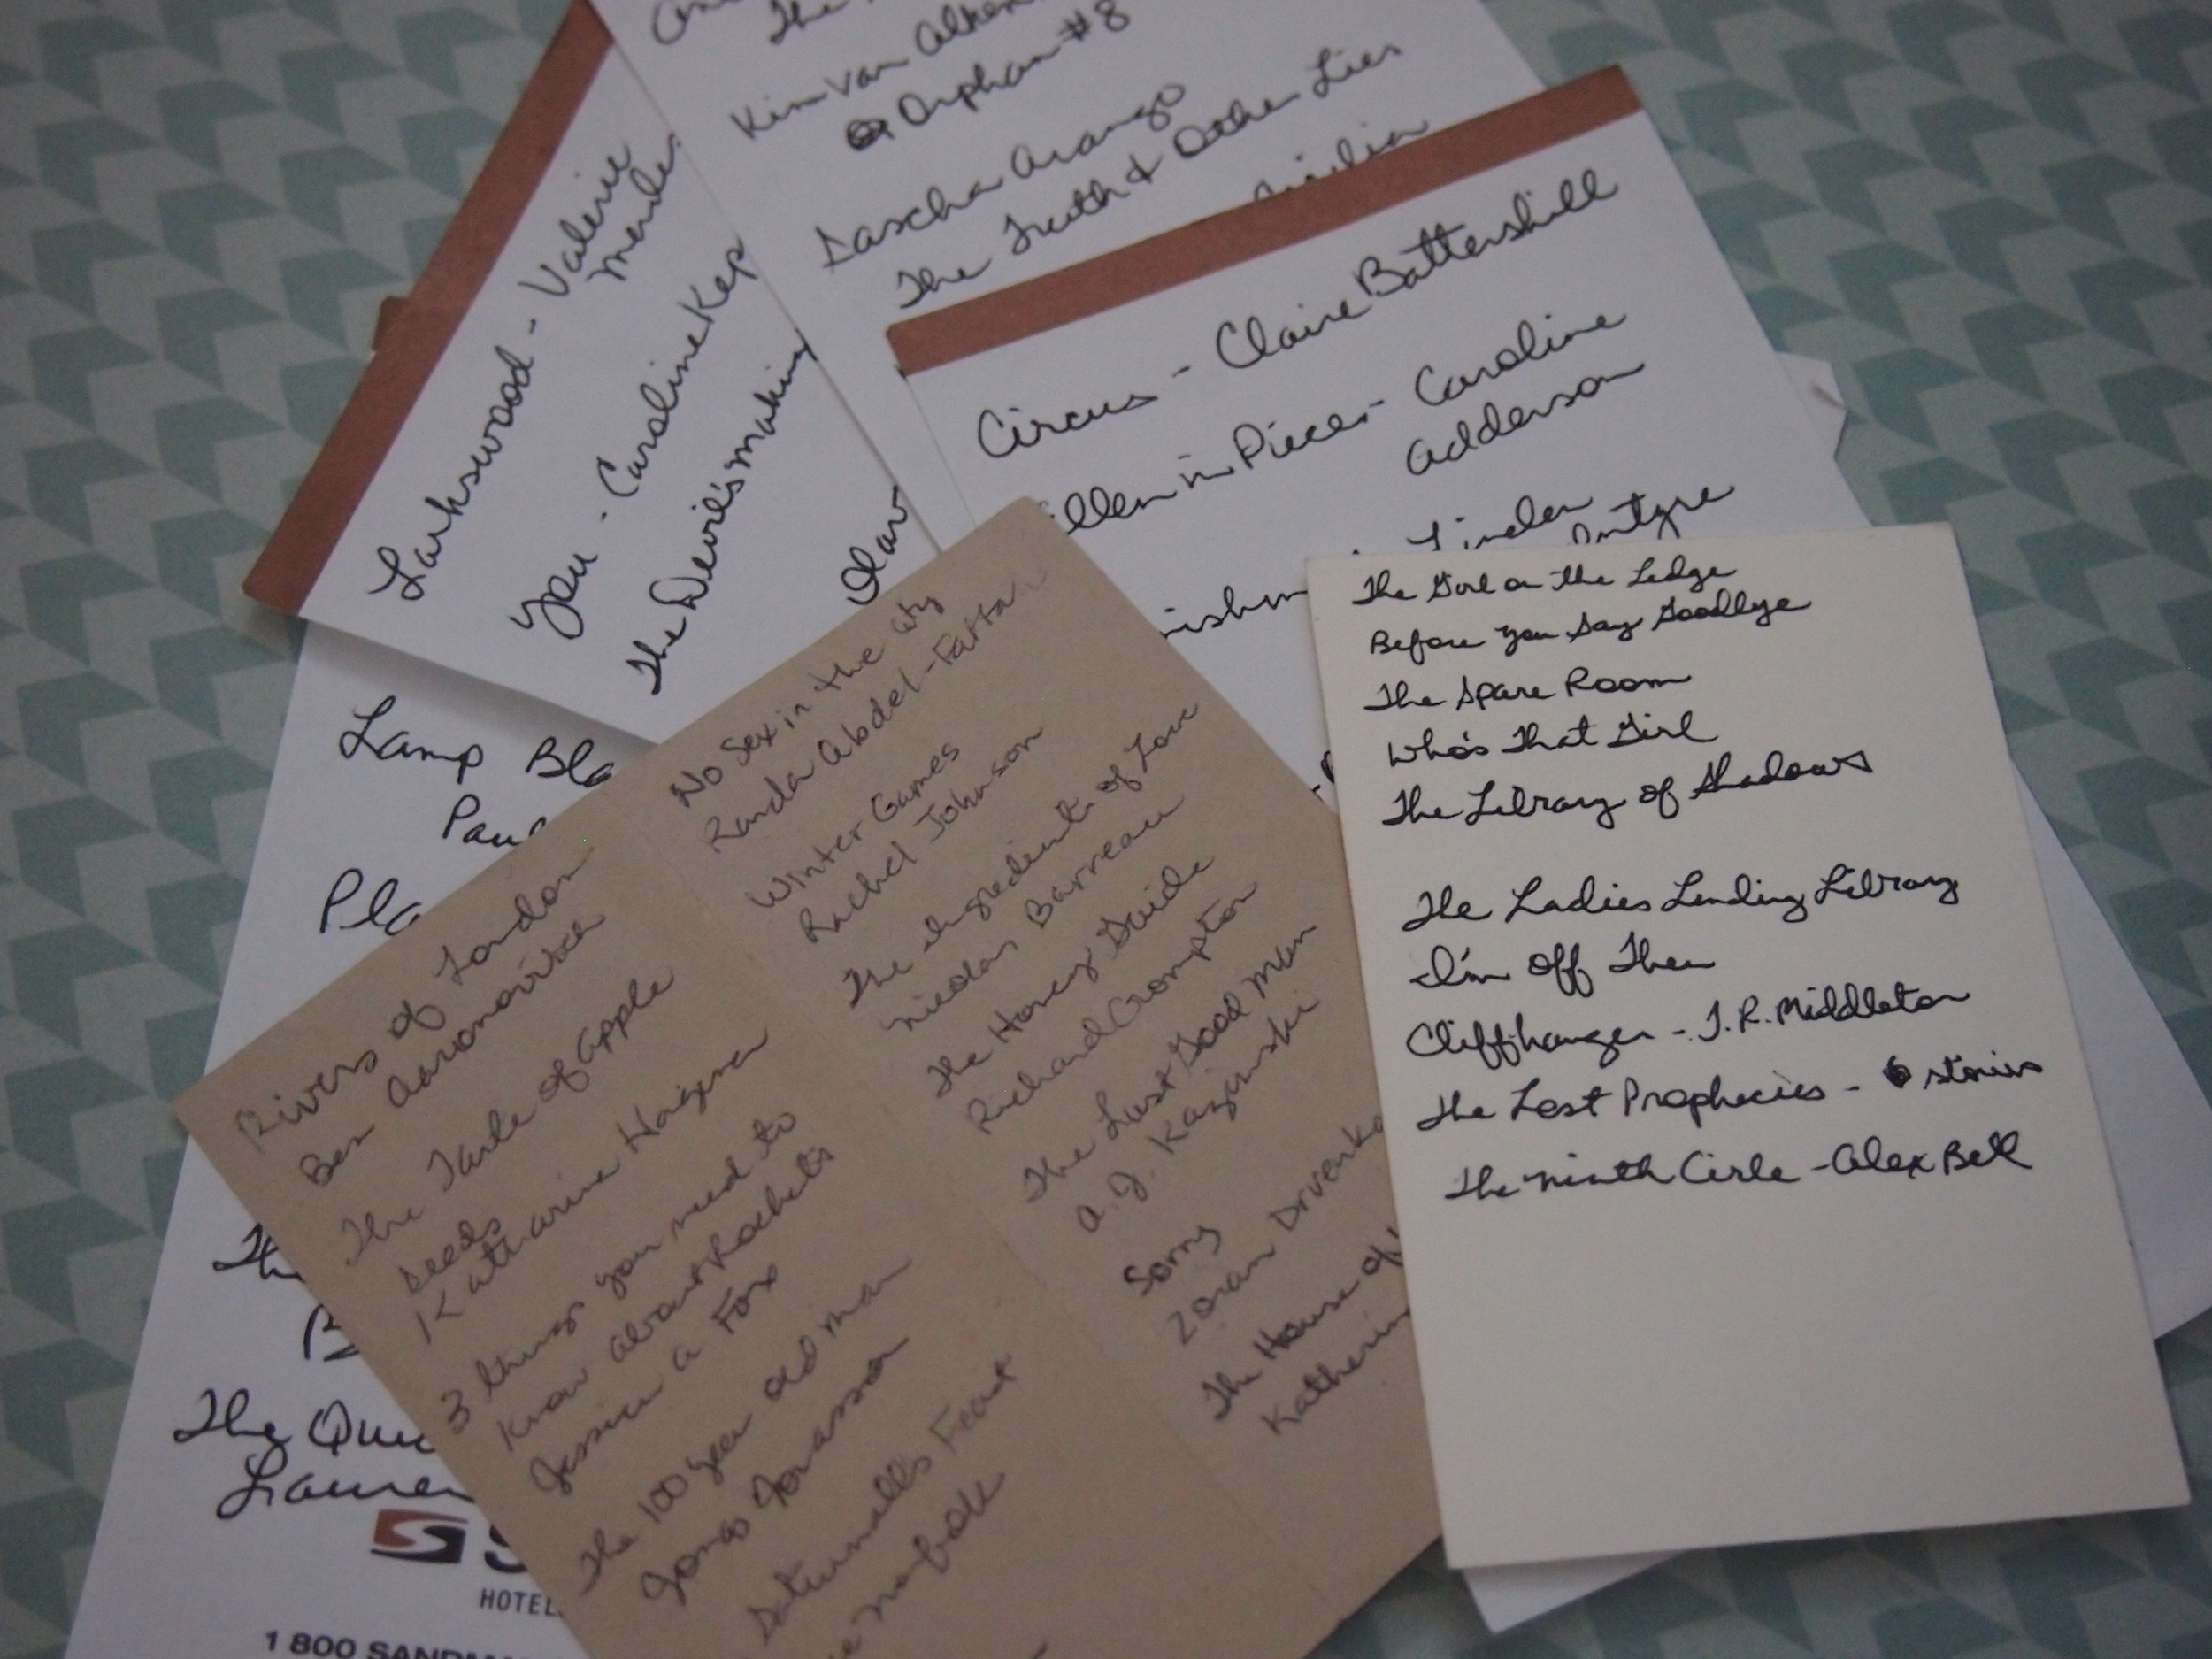 The
Kim van Alken
Orphan #8
Sascha Arango
The Truth & Other Lies
Larkswood - Valerie
Mendes
You - Caroline Kep
The Devil's Making
Circus - Claire Battershill
Ellen in Pieces - Caroline
Adderson
Linden
Intyre
Lamp Bla
Pau
Pla
Th
B
The Qui
Lauren
HOTEL
1 800 SANDM
No Sex in the City
Randa Abdel-Fattah
Winter Games
Rachel Johnson
The Ingredients of Love
Nicolas Barreau
The Honey Guide
Richard Crompton
The Last Good Man
A. J. Kazinski
Sorry
Zoran Drvenka
The House of
Katherin
Rivers of London
Ben Aaronovitch
The Taste of Apple
Seeds
Katharine Hagena
3 things you need to
know about Rockets
Jessica A Fox
The 100 year old man
Jonas Jonasson
Saturnall's Feast
Norfolk
The Girl on the Ledge
Before You Say Goodbye
The Spare Room
Who's That Girl
The Library of Shadows
The Ladies Lending Library
I'm Off Then
Cliffhanger - T.R. Middleton
The Lost Prophecies - 6 stories
The Ninth Cirle - Alex Bell